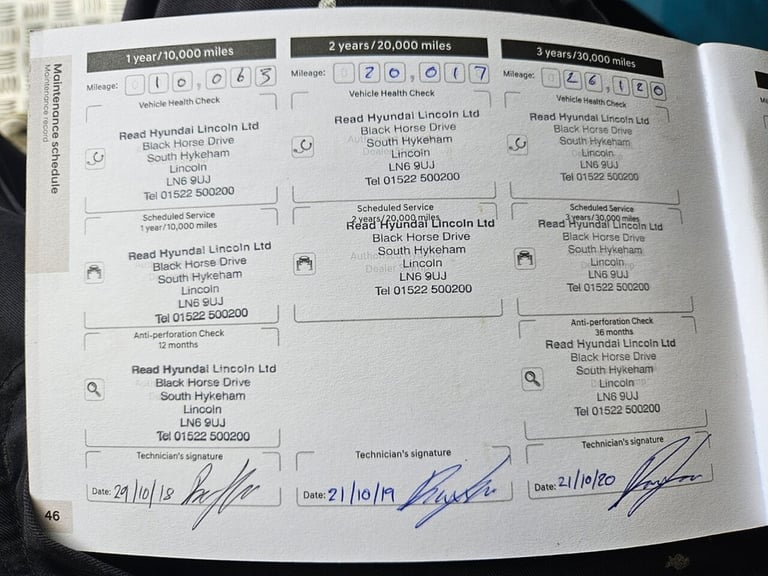 Maintenance schedule
Maintenance record
1 year/10,000 miles
Mileage: 0 10,063
Vehicle Health Check
Read Hyundai Lincoln Ltd
Black Horse Drive
South Hykeham
Lincoln
LN6 9UJ
Tel 01522 500200
Scheduled Service
1 year/10,000 miles
Read Hyundai Lincoln Ltd
Black Horse Drive
South Hykeham
Lincoln
LN6 9UJ
Tel 01522 500200
Anti-perforation Check
12 months
Read Hyundai Lincoln Ltd
Black Horse Drive
South Hykeham
Lincoln
LN6 9UJ
Tel 01522 500200
Technician's signature
Date: 29/10/18
2 years/20,000 miles
Mileage: 0 20,017
Vehicle Health Check
Read Hyundai Lincoln Ltd
Black Horse Drive
South Hykeham
Lincoln
LN6 9UJ
Tel 01522 500200
Scheduled Service
2 years/20,000 miles
Read Hyundai Lincoln Ltd
Black Horse Drive
South Hykeham
Lincoln
LN6 9UJ
Tel 01522 500200
Technician's signature
Date: 21/10/19
3 years/30,000 miles
Mileage: 0 26,120
Vehicle Health Check
Read Hyundai Lincoln Ltd
Black Horse Drive
South Hykeham
Lincoln
LN6 9UJ
Tel 01522 500200
Scheduled Service
3 years/30,000 miles
Read Hyundai Lincoln Ltd
Black Horse Drive
South Hykeham
Lincoln
LN6 9UJ
Tel 01522 500200
Anti-perforation Check
36 months
Read Hyundai Lincoln Ltd
Black Horse Drive
South Hykeham
Lincoln
LN6 9UJ
Tel 01522 500200
Technician's signature
Date: 21/10/20
46